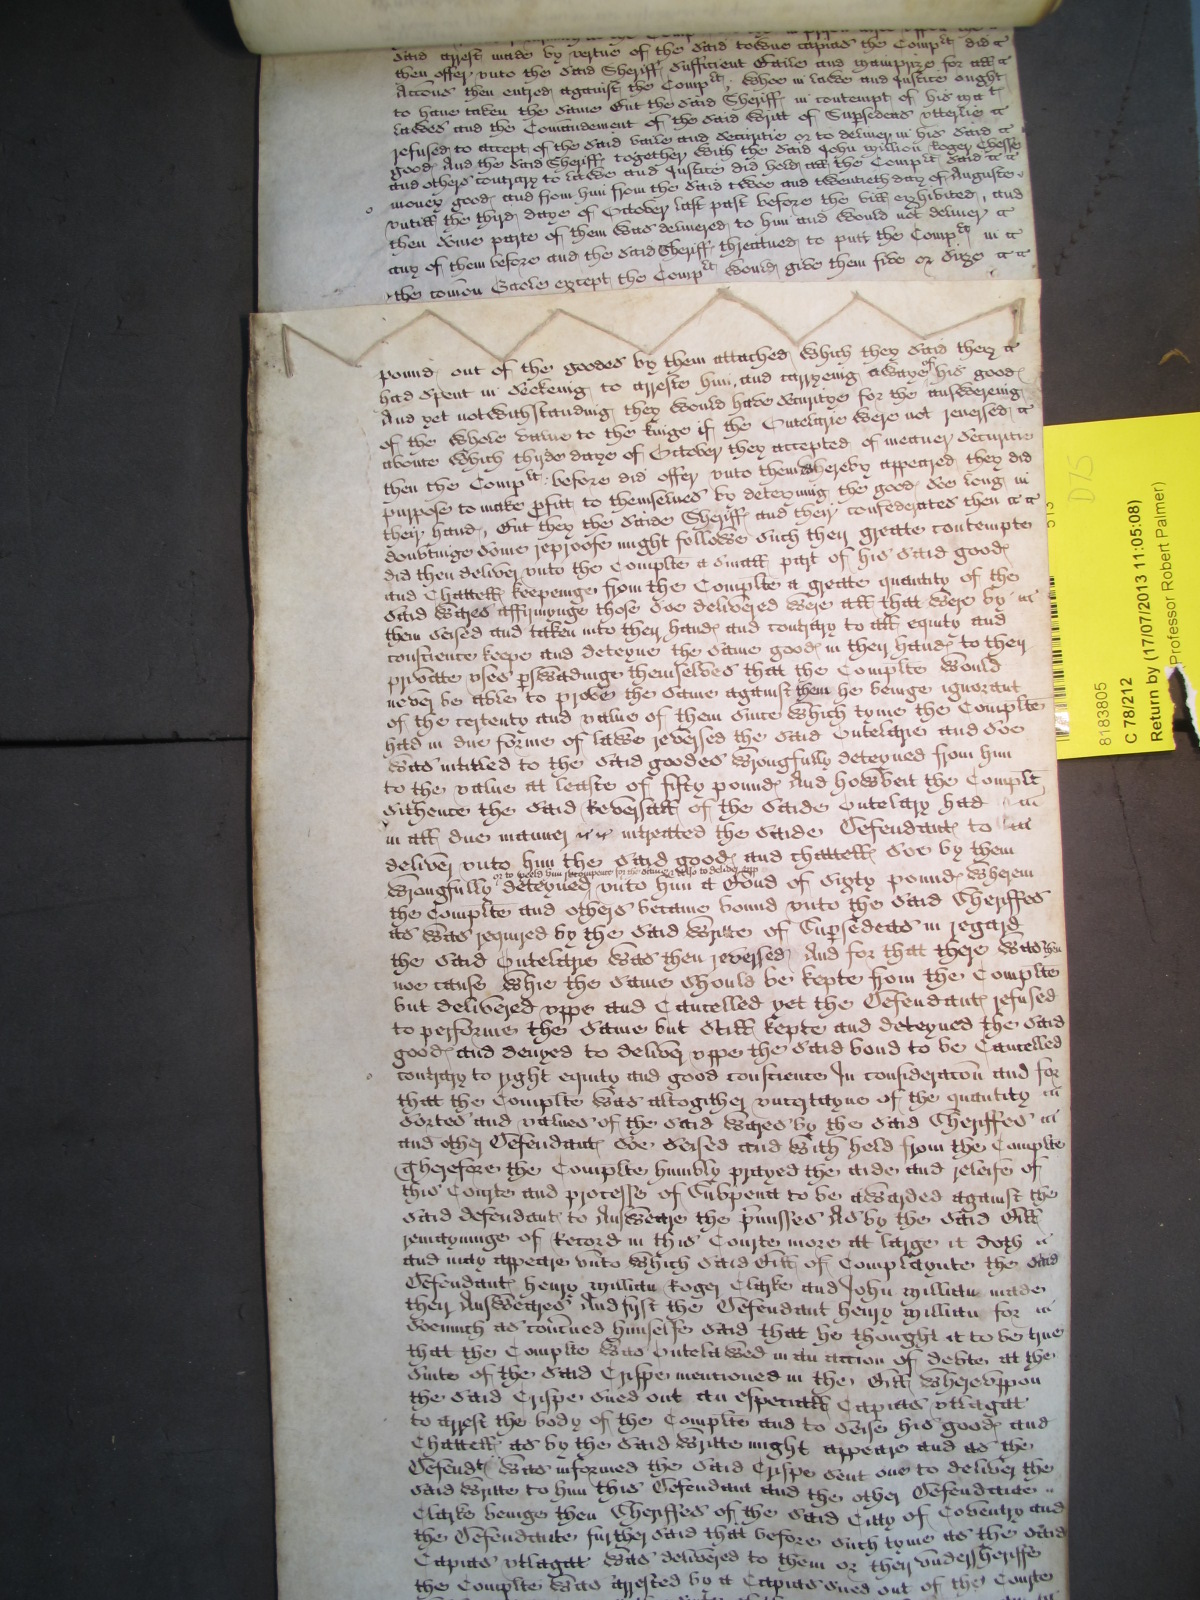 said arrest made by vertue of the said towne capias the Complt did
then offer vnto the said Sheriff sufficient Baile and mainprize for all
Accons then entred against the Complt, whoe in lawe and Justice ought
to have taken the same But the said Sheriff in contempt of his
lawes and the Comandement of the said writt of Supsedeas vtterlie
refused to accept of the said baile and securitie or to deliver him his said
good And the said Sheriff together with the said John million Roger
and others contrary to lawe and Justice did hold all the Complt said
money good and from him from the said twoe and twentieth day of Auguste
vntill the third daye of October last past before the bill exhibited, and
then some parte of them was delivered to him and would not deliver
any of them before and the said Sheriff threatned to putt the Complt in
the comon Gaole except the Complt would give them five or sixe
pound out of the goodes by them attached which they said they
had spent in seekeing to arreste him, and carryeing awaye of his good
And yet notwithstanding they would have securitye for the answereing
of the whole value to the kinge if the Outelarie were not reversed
aboute which thirde daye of October they accepted of meaner securitie
then the Complt before did offer vnto them whereby appeared they did
purpose to make pfitt to themselves by deteyning the good soe long in
their hand, But they the saide Sheriff and their confederates then
doubtinge some reproofe might followe such their greate contempte
did then deliver vnto the Complte a small part of his said good
and Chattell keepeinge from the Complte a greate quantity of the
said wares affirmynge those soe delivered were all that were by
them seised and taken into their hand and contrary to all equity and
conscience keepe and deteyne the same good in their hand to their
private vses pswadinge themselves that the Complte would
never be able to prove the same against them he beinge ignorant
of the certenty and value of them since which tyme the Complte
had in due forme of lawe reversed the said Outelarie and soe
was intitled to the said goodes wrongfully deteyned from him
to the value at leaste of fifty pound And howbeit the Complt
sithence the said Reversall of the saide Outelary had
in all due manner intreated the saide Defendant to
deliver vnto him the said good and chattell soe by them
or to yeeld him recompence for the same & also to deliver upp
wrongfully deteyned vnto him a Bond of sixty pound wherein
the Complte and others became bound vnto the said Sheriffes
as was required by the said writte of Supsedeas in regard
the said Outelarie was then reversed And for that there was then
noe cause whie the same should be kepte from the Complte
but delivered vppe and Cancelled yet the Defendant refused
to performe the same but still kepte and deteyned the said
good and denyed to deliver vppe the said bond to be Cancelled
contrary to right equity and good conscience In consideracon and for
that the Complte was altogither vncertayne of the quantity
sortes and values of the said wares by the said Sheriffes
and other Defendant soe seised and with held from the Complte
Therefore the Complte humbly prayed the aide and releife of
this Courte and processe of Subpena to be awarded against the
said defendant to Answeare the pmisses As by the said Bill
remayninge of Record in this Courte more at large it doth
and may appeare vnto which said Bill of Complaynte the said
Defendant henry million Roger Clarke and John million made
their Answeares And first the Defendant henry million for
soemuch as concned himselfe said that he thought it to be true
that the Complte was Outelawed in an action of debte at the
suite of the said Crispe mentioned in the Bill wherevppon
the said Crispe sued out an especiall Capias vtlagat
to arrest the body of the Complte and to seise his good and
Chattell as by the said writte might appeare and as the
Defendt was informed the said Crispe sent one to deliver the
said writte to him this Defendant and the other Defendante
Clarke beinge then Sheriffes of the said Citty of Coventry and
the Defendante further said that before such tyme as the said
Capias vtlagat was delivered to them or their vndersheriffe
the Complte was arrested by a Capias sued out of the Courte
D75
8183805
C 78/212
Return by (17/07/2013 11:05:08)
Professor Robert Palmer)